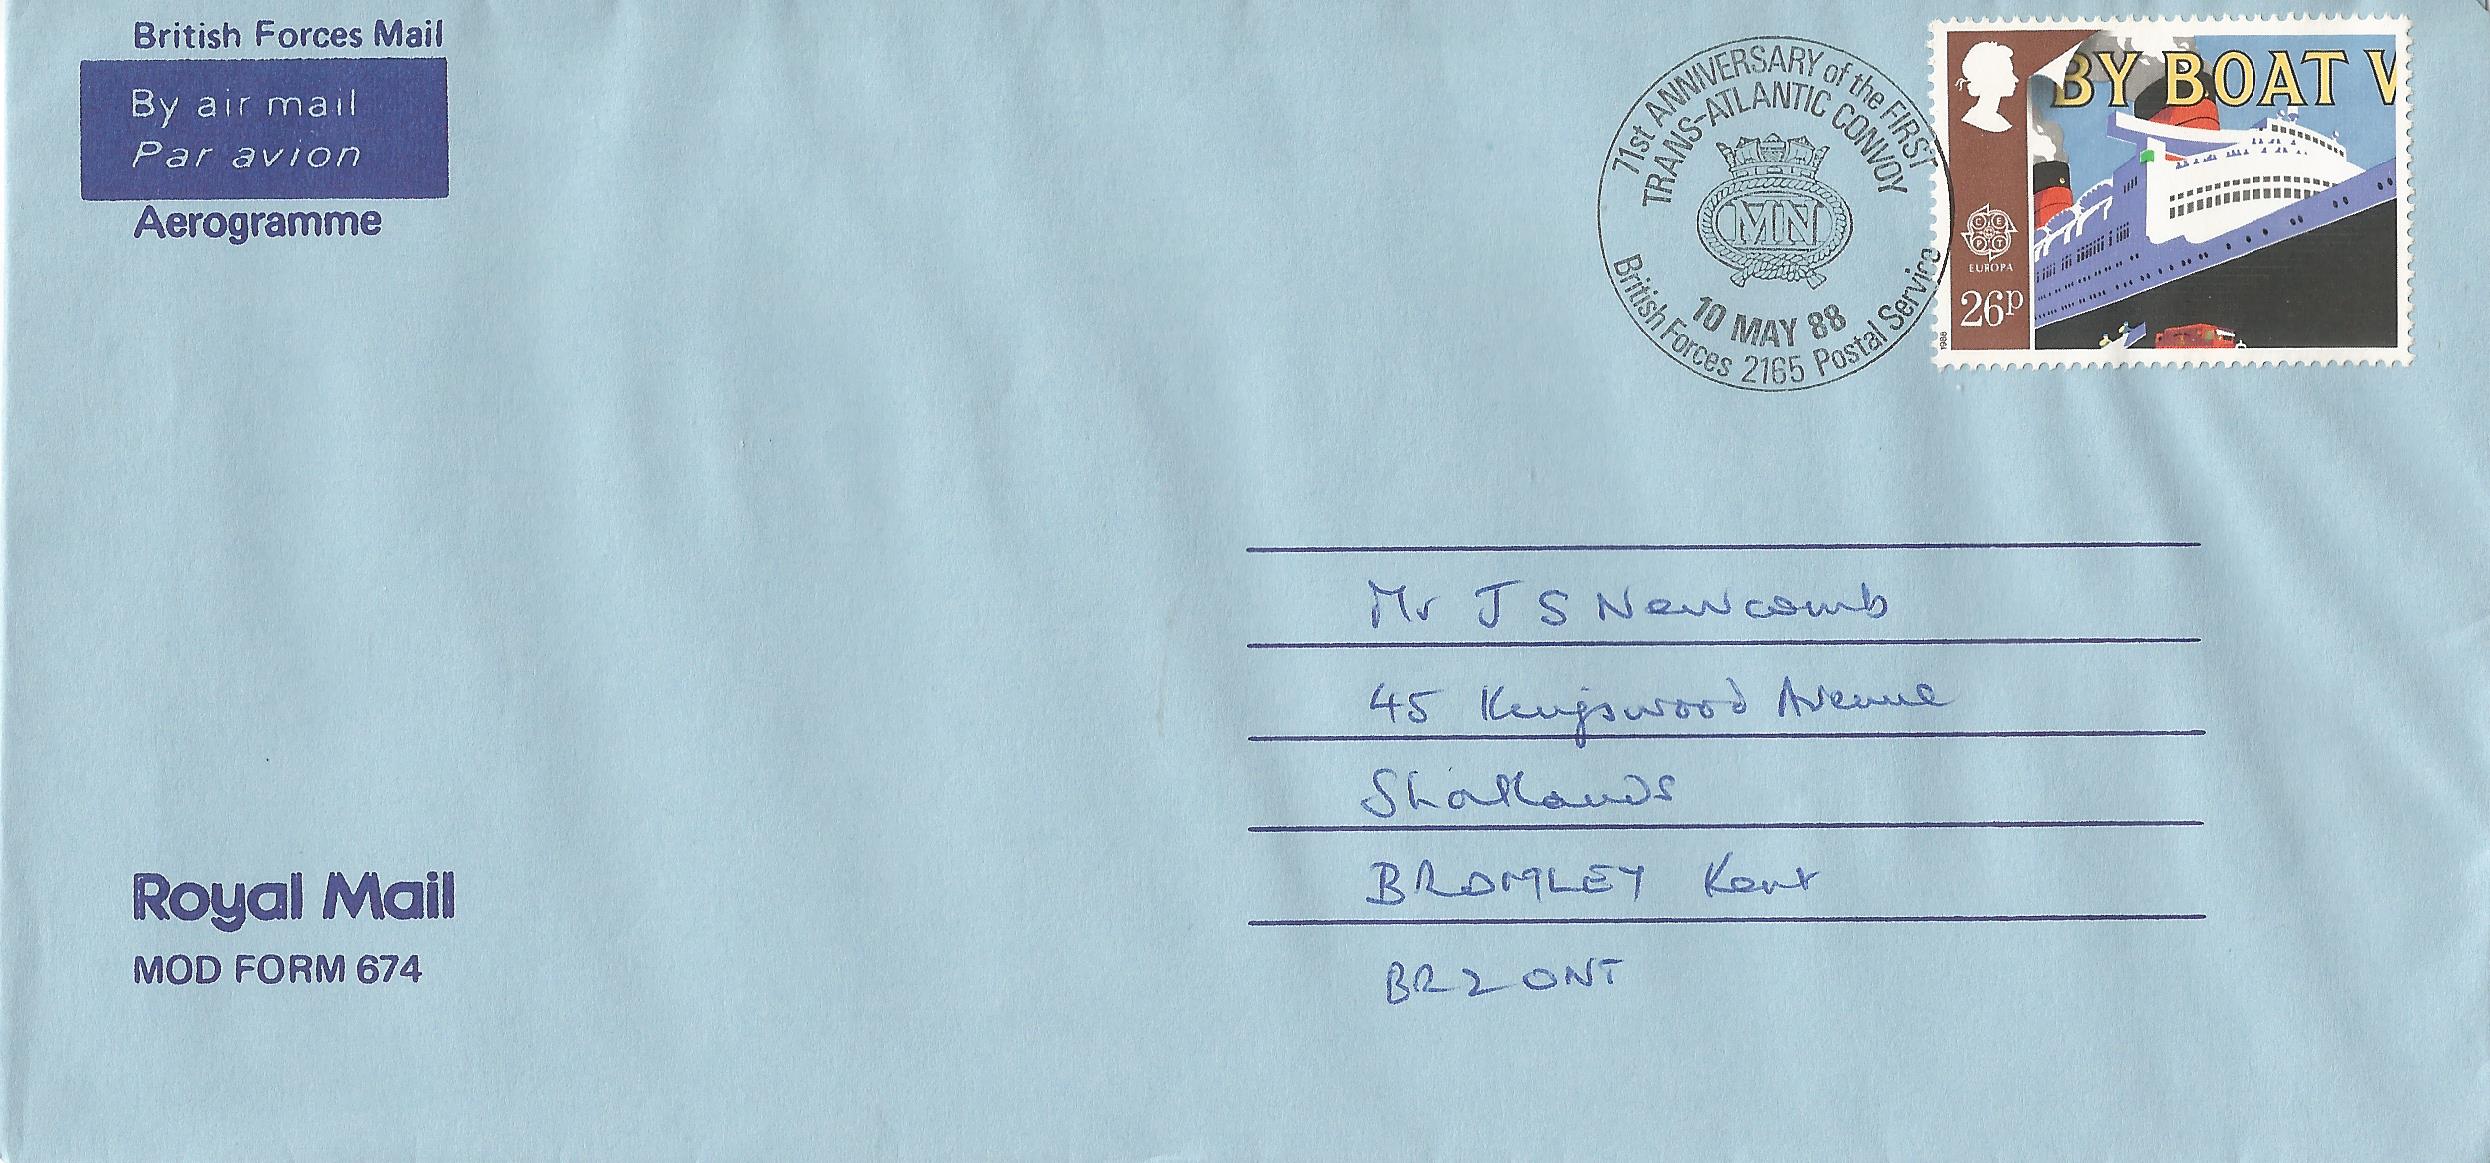 British Forces Mail
By air mail
Par avion
Aerogramme
71st ANNIVERSARY of the FIRST
TRANS-ATLANTIC CONVOY
MN
10 MAY 88
British Forces 2165 Postal Service
BY BOAT V
CEPT
EUROPA
26p
1988
Mr J S Newcomb
45 Kingswood Avenue
Shortlands
BROMLEY Kent
BR2 0NT
Royal Mail
MOD FORM 674